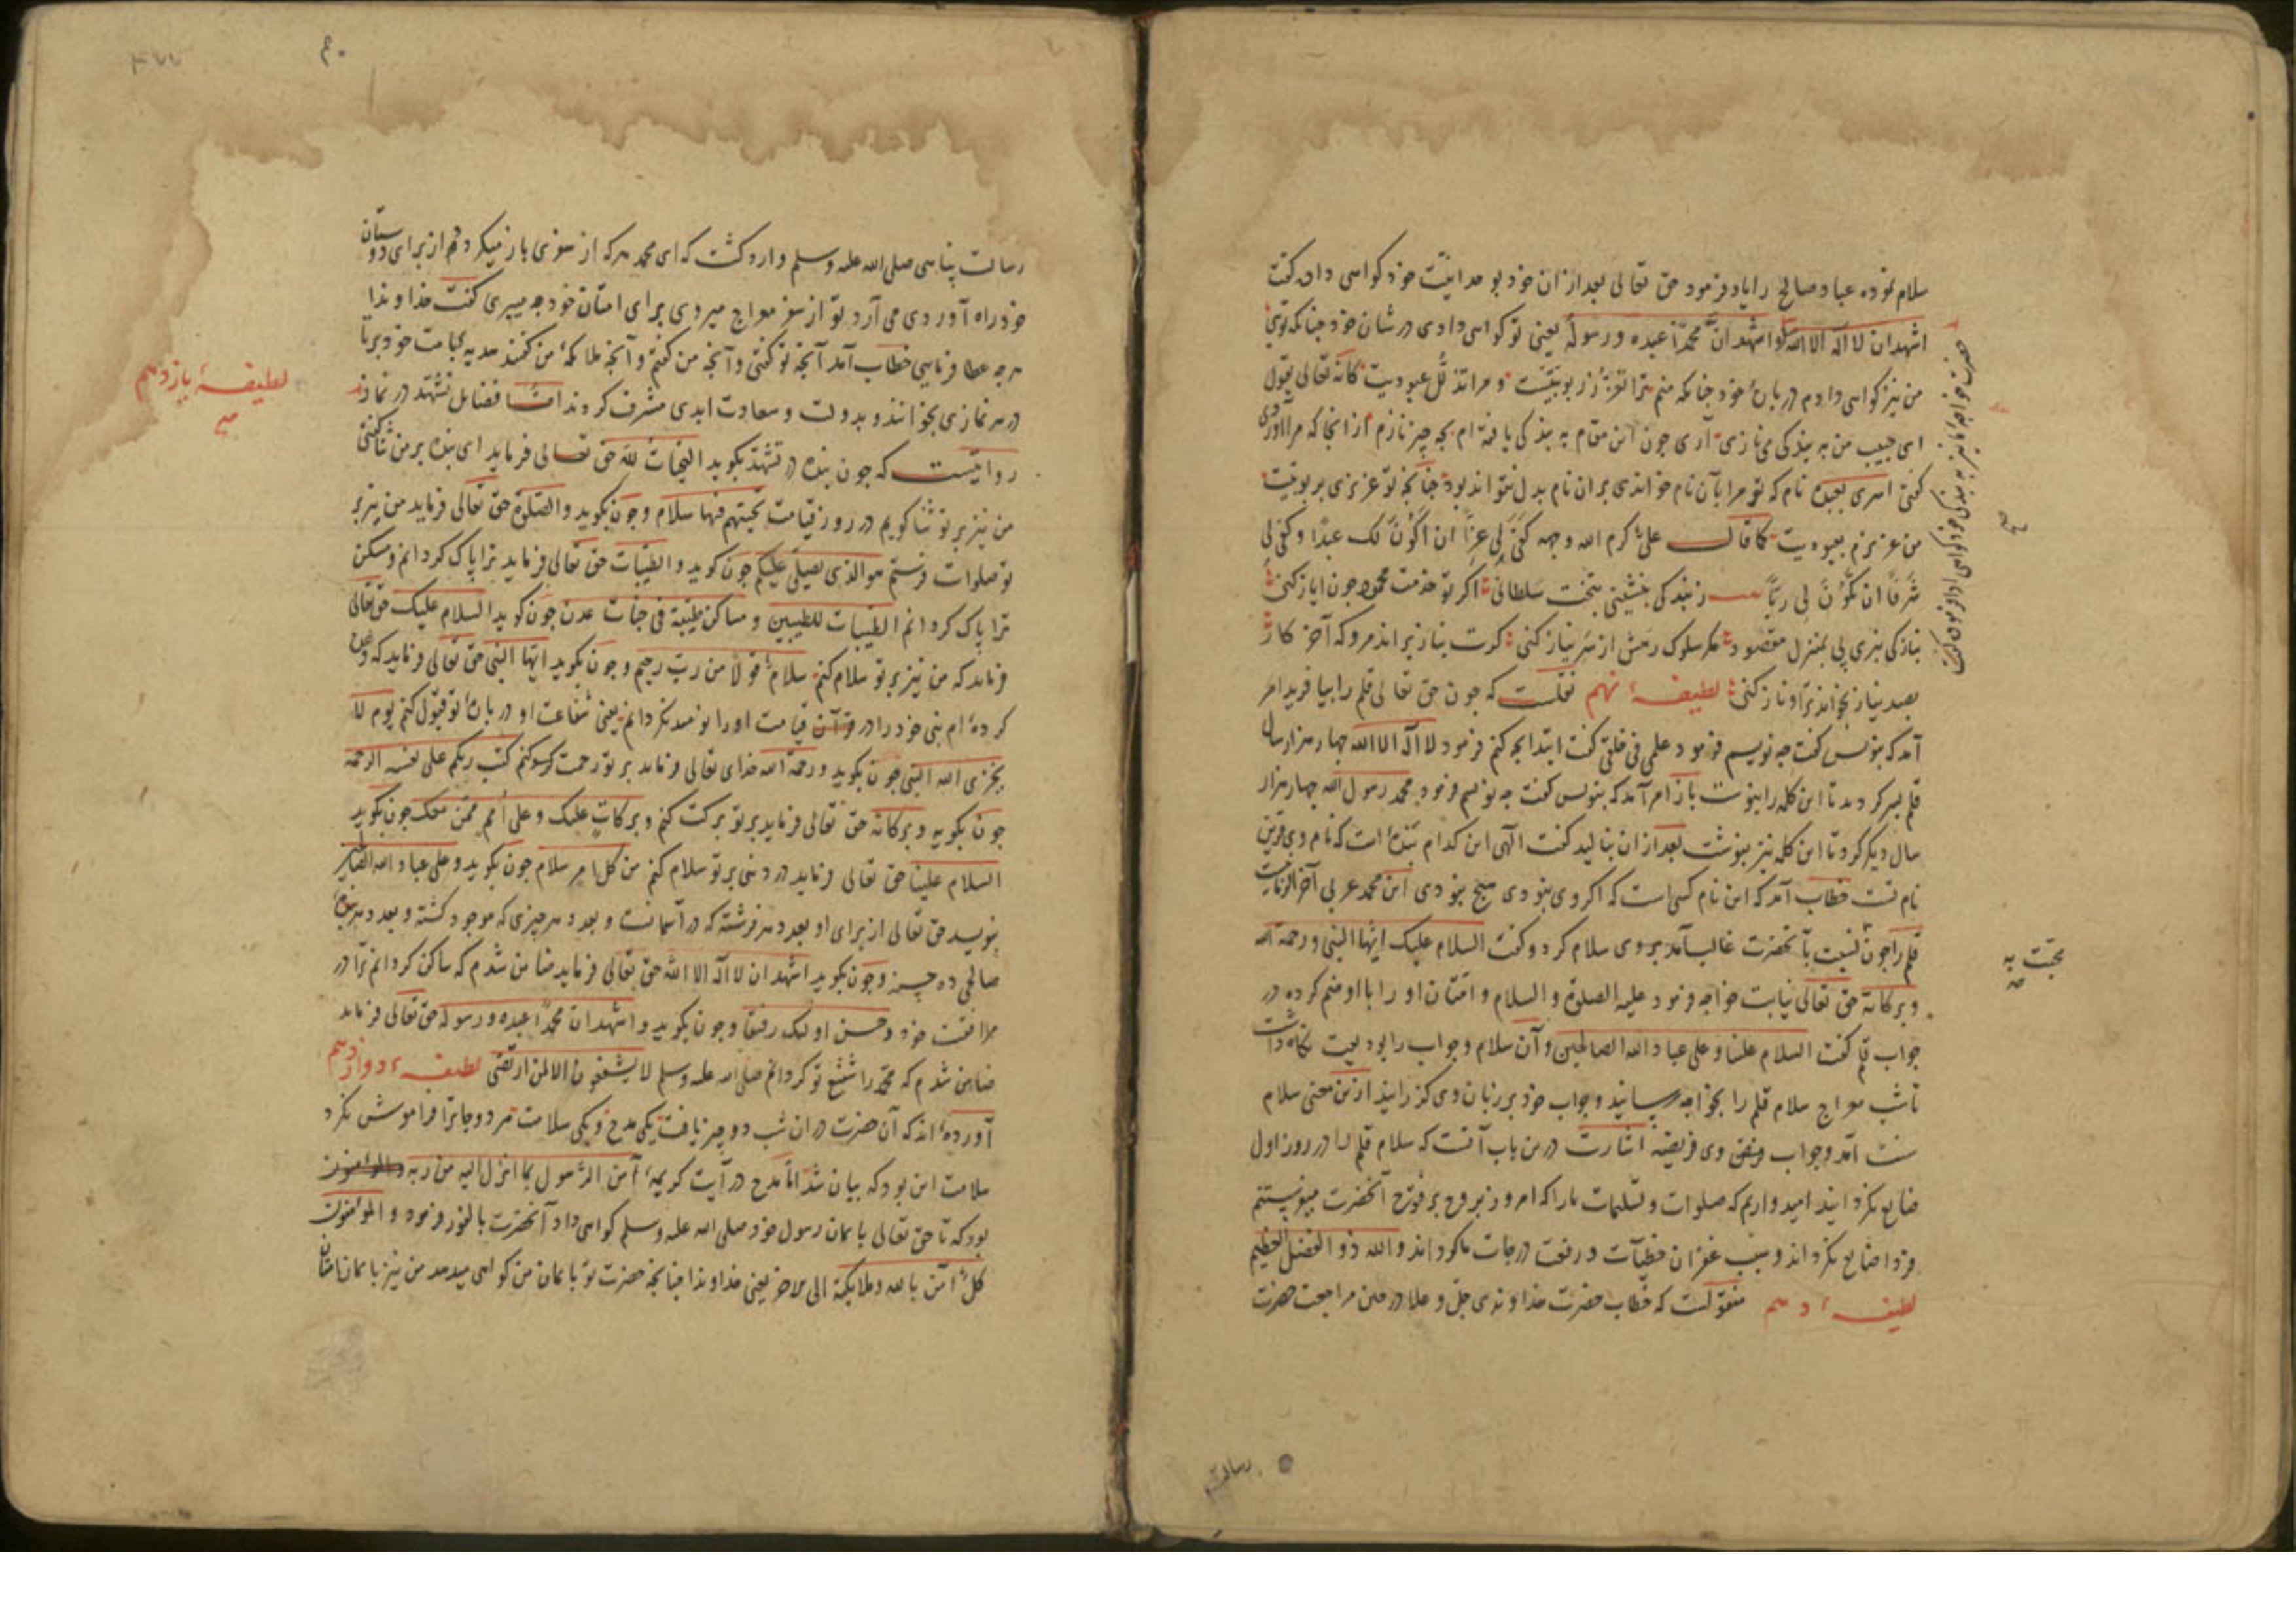 سلام نموده عباد صالح را یاد فرمود حق تعالی بعد از ان خود بوحدانیت خود کواهی داد کفت
اشهد ان لا اله الا الله و اشهد ان محمدا عبده و رسوله یعنی تو کواهی دادی در شان خود چنانکه توئی
من نیز کواهی دادم در باب خود چنانکه منم ترا تعزز ربوبیت و مرا تذلل عبودیت کانه تعالی یقول
ای حبیب من به بندکی می نازی آری چون این مقام به بندکی یافته ام بچه چیز نازم از انجا که مرا آوردی
کفتی اسری بعبده نام که تو مرا بآن نام خواندی بر ان نام بدل نتواند بود چنانچه تو عزیزی بربوبیت
من عزیزم بعبودیت کما قال علی کرم الله وجهه کفی لی عزا ان اکون لک عبدا و کفی لی
شرفا ان تکون لی ربا ز بندکی بنشینی بتخت سلطانی اکر تو خدمت محمود چون ایاز کنی
بناز کی ببری پی بمنزل مقصود مکر سلوک رهش از سر نیاز کنی کرت بناز براند مرو که آخر کار
بصد نیاز بخواند ترا و ناز کنی لطیفه نهم نقلست که چون حق تعالی قلم را بیافرید امر
آمد که بنویس کفت چه نویسم فرمود علمی فی خلقی کفت ابتدا بچه کنم فرمود لا اله الا الله چهار هزار سال
قلم سیر کرد تا این کلمه را بنوشت باز امر آمد که بنویس کفت چه نویسم فرمود محمد رسول الله چهار هزار
سال دیکر کرد تا این کلمه نیز بنوشت بعد از ان بنالید کفت الهی این کدام بنده است که نام وی قرین
نام تست خطاب آمد که این نام کسی است که اکر وی نبودی هیچ نبودی این محمد عربی آخر الزمانست
قلم را چون نسبت بآنحضرت غالب آمد بر وی سلام کرد و کفت السلام علیک ایها النبی و رحمة الله
و برکاته حق تعالی نیابت خواجه فرمود علیه الصلوة و السلام و امتان او را با او ضم کرده در
جواب قلم کفت السلام علینا و علی عباد الله الصالحین و آن سلام و جواب را بودیعت نکاه داشت
تا شب معراج سلام قلم را بخواجه رسانید و جواب خود بر زبان وی کذرانید ازین معنی سلام
سنت آمد و جواب وی فریضه اشارت درین باب آنست که سلام قلم را در روز اول
ضایع نکردانید امیدواریم که صلوات و تسلیمات ما را که امروز بروح پر فتوح آنحضرت میفرستیم
فردا ضایع نکرداند و سبب غفران خطیآت و رفعت درجات ما کرداند والله ذو الفضل العظیم
لطیفه دهم منقولست که خطاب حضرت خداوندی جل و علا در حین مراجعت حضرت
رسالت
رسالت پناهی صلی الله علیه وسلم وارد کشت که ای محمد هر که از سفری باز میکردد از برای دوستان
خود راه آوردی می آرد تو از سفر معراج میروی برای امتان خود چه میبری کفت خداوندا
هر چه عطا فرمایی خطاب آمد آنچه تو کفتی و آنچه من کفتم و آنچه ملائکه من کفتند هدیه بجهت خود بر تا
در هر نمازی بخوانند و بدولت و سعادت ابدی مشرف کردند اما فضایل تشهد در نماز
لطیفه یازدهم
روایتست که چون بنده در تشهد بکوید التحیات لله حق تعالی فرماید ای بنده بر من ثنا کفتی
من نیز بر تو ثنا کویم در روز قیامت تحیتهم فیها سلام و چون بکوید و الصلوة حق تعالی فرماید من نیز بر
تو صلوات فرستم هو الذی یصلی علیکم چون کوید و الطیبات حق تعالی فرماید ترا پاک کردانم و مسکن
ترا پاک کردانم الطیبات للطیبین و مساکن طیبة فی جنات عدن چون کوید السلام علیک حق تعالی
فرماید که من نیز بر تو سلام کنم سلام قولا من رب رحیم و چون بکوید ایها النبی حق تعالی فرماید که وعده
کرده ام نبی خود را در قیامت او را نومید نکردانم یعنی شفاعت او در باب تو قبول کنم یوم لا
یخزی الله النبی چون بکوید و رحمة الله خدای تعالی فرماید بر تو رحمت کنم کتب ربکم علی نفسه الرحمة
چون بکوید و برکاته حق تعالی فرماید بر تو برکت کنم و برکات علیک و علی امم ممن معک چون بکوید
السلام علینا حق تعالی فرماید بر تو سلام کنم من کل امر سلام چون بکوید و علی عباد الله الصالحین
بنویسد حق تعالی از برای او بعدد هر فرشته که در آسمانست و بعدد هر چیزی که موجود کشته و بعدد هر بنده
صالحی ده حسنه و چون بکوید اشهد ان لا اله الا الله حق تعالی فرماید ضامن شدم که ساکن کردانم ترا در
مرافقت خود و حسن اولئک رفیقا و چون بکوید و اشهد ان محمدا عبده و رسوله حق تعالی فرماید
ضامن شدم که محمد را شفیع تو کردانم صلی الله علیه وسلم لا یشفعون الا لمن ارتضی لطیفه دوازدهم
آورده اند که آن حضرت در ان شب دو چیز یافت یکی مدح و یکی سلامت در دو جا ترا فراموش نکرد
سلامت این بود که بیان شد اما مدح در آیت کریمه آمن الرسول بما انزل الیه من ربه والمؤمنون
بود که تا حق تعالی بایمان رسول خود صلی الله علیه وسلم کواهی داد آنحضرت بالفور فرمود و المؤمنون
کل آمن بالله و ملائکته الی آخر یعنی خداوندا چنانچه حضرت تو بایمان من کواهی میدهد من نیز بایمان امتان